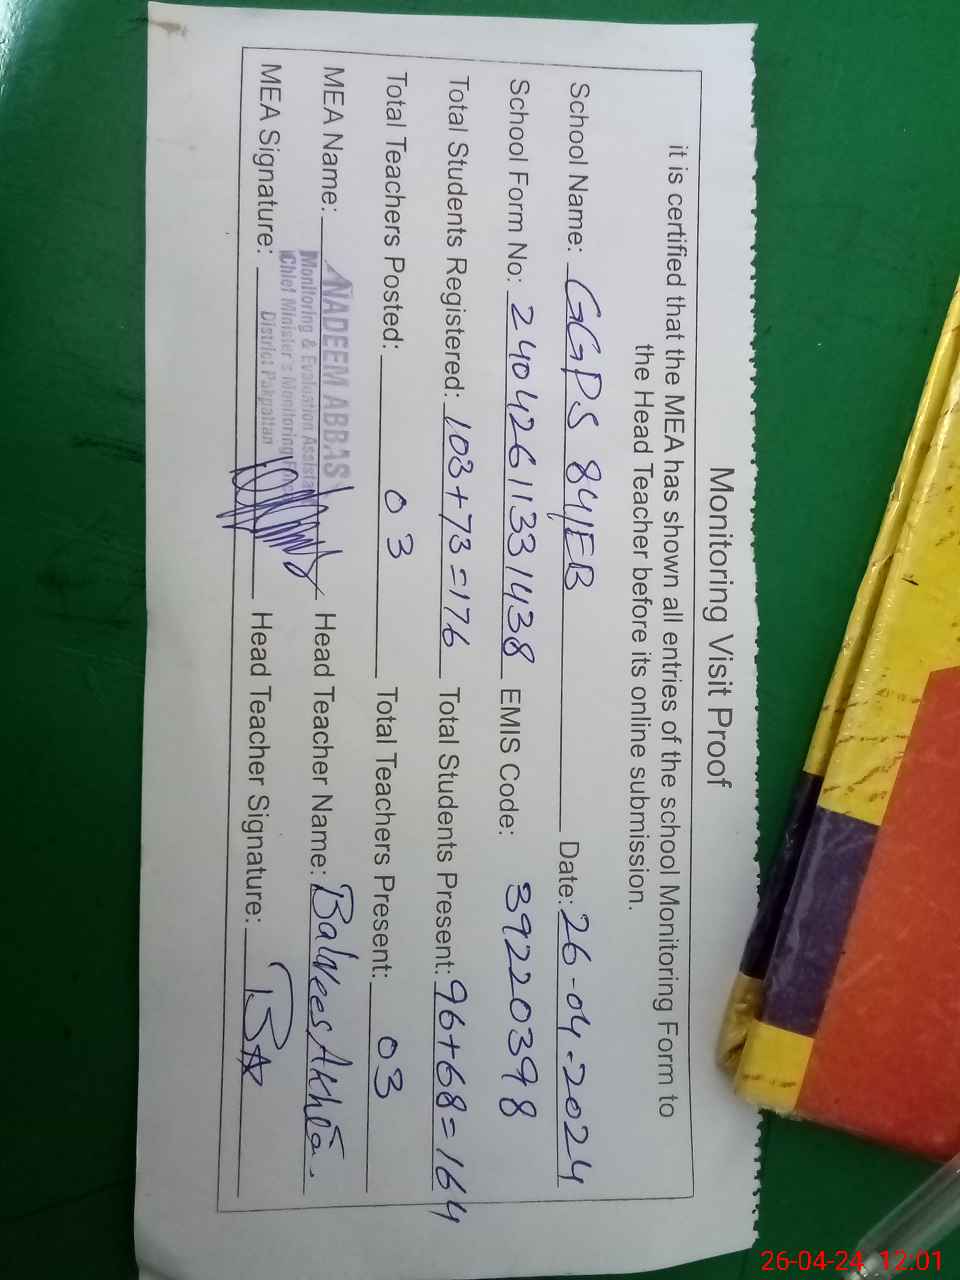 Monitoring Visit Proof
it is certified that the MEA has shown all entries of the school Monitoring Form to
the Head Teacher before its online submission.
School Name: GGPS 84/EB Date: 26-04-2024
School Form No: 24042611331438 EMIS Code: 39220398
Total Students Registered: 103+73=176 Total Students Present: 96+68=164
Total Teachers Posted: 03 Total Teachers Present: 03
MEA Name: NADEEM ABBAS Head Teacher Name: Balqees Akhta.
Monitoring & Evaluation Assistant
Chief Minister's Monitoring
District Pakpattan
MEA Signature: Head Teacher Signature: BA
26-04-24 12:01